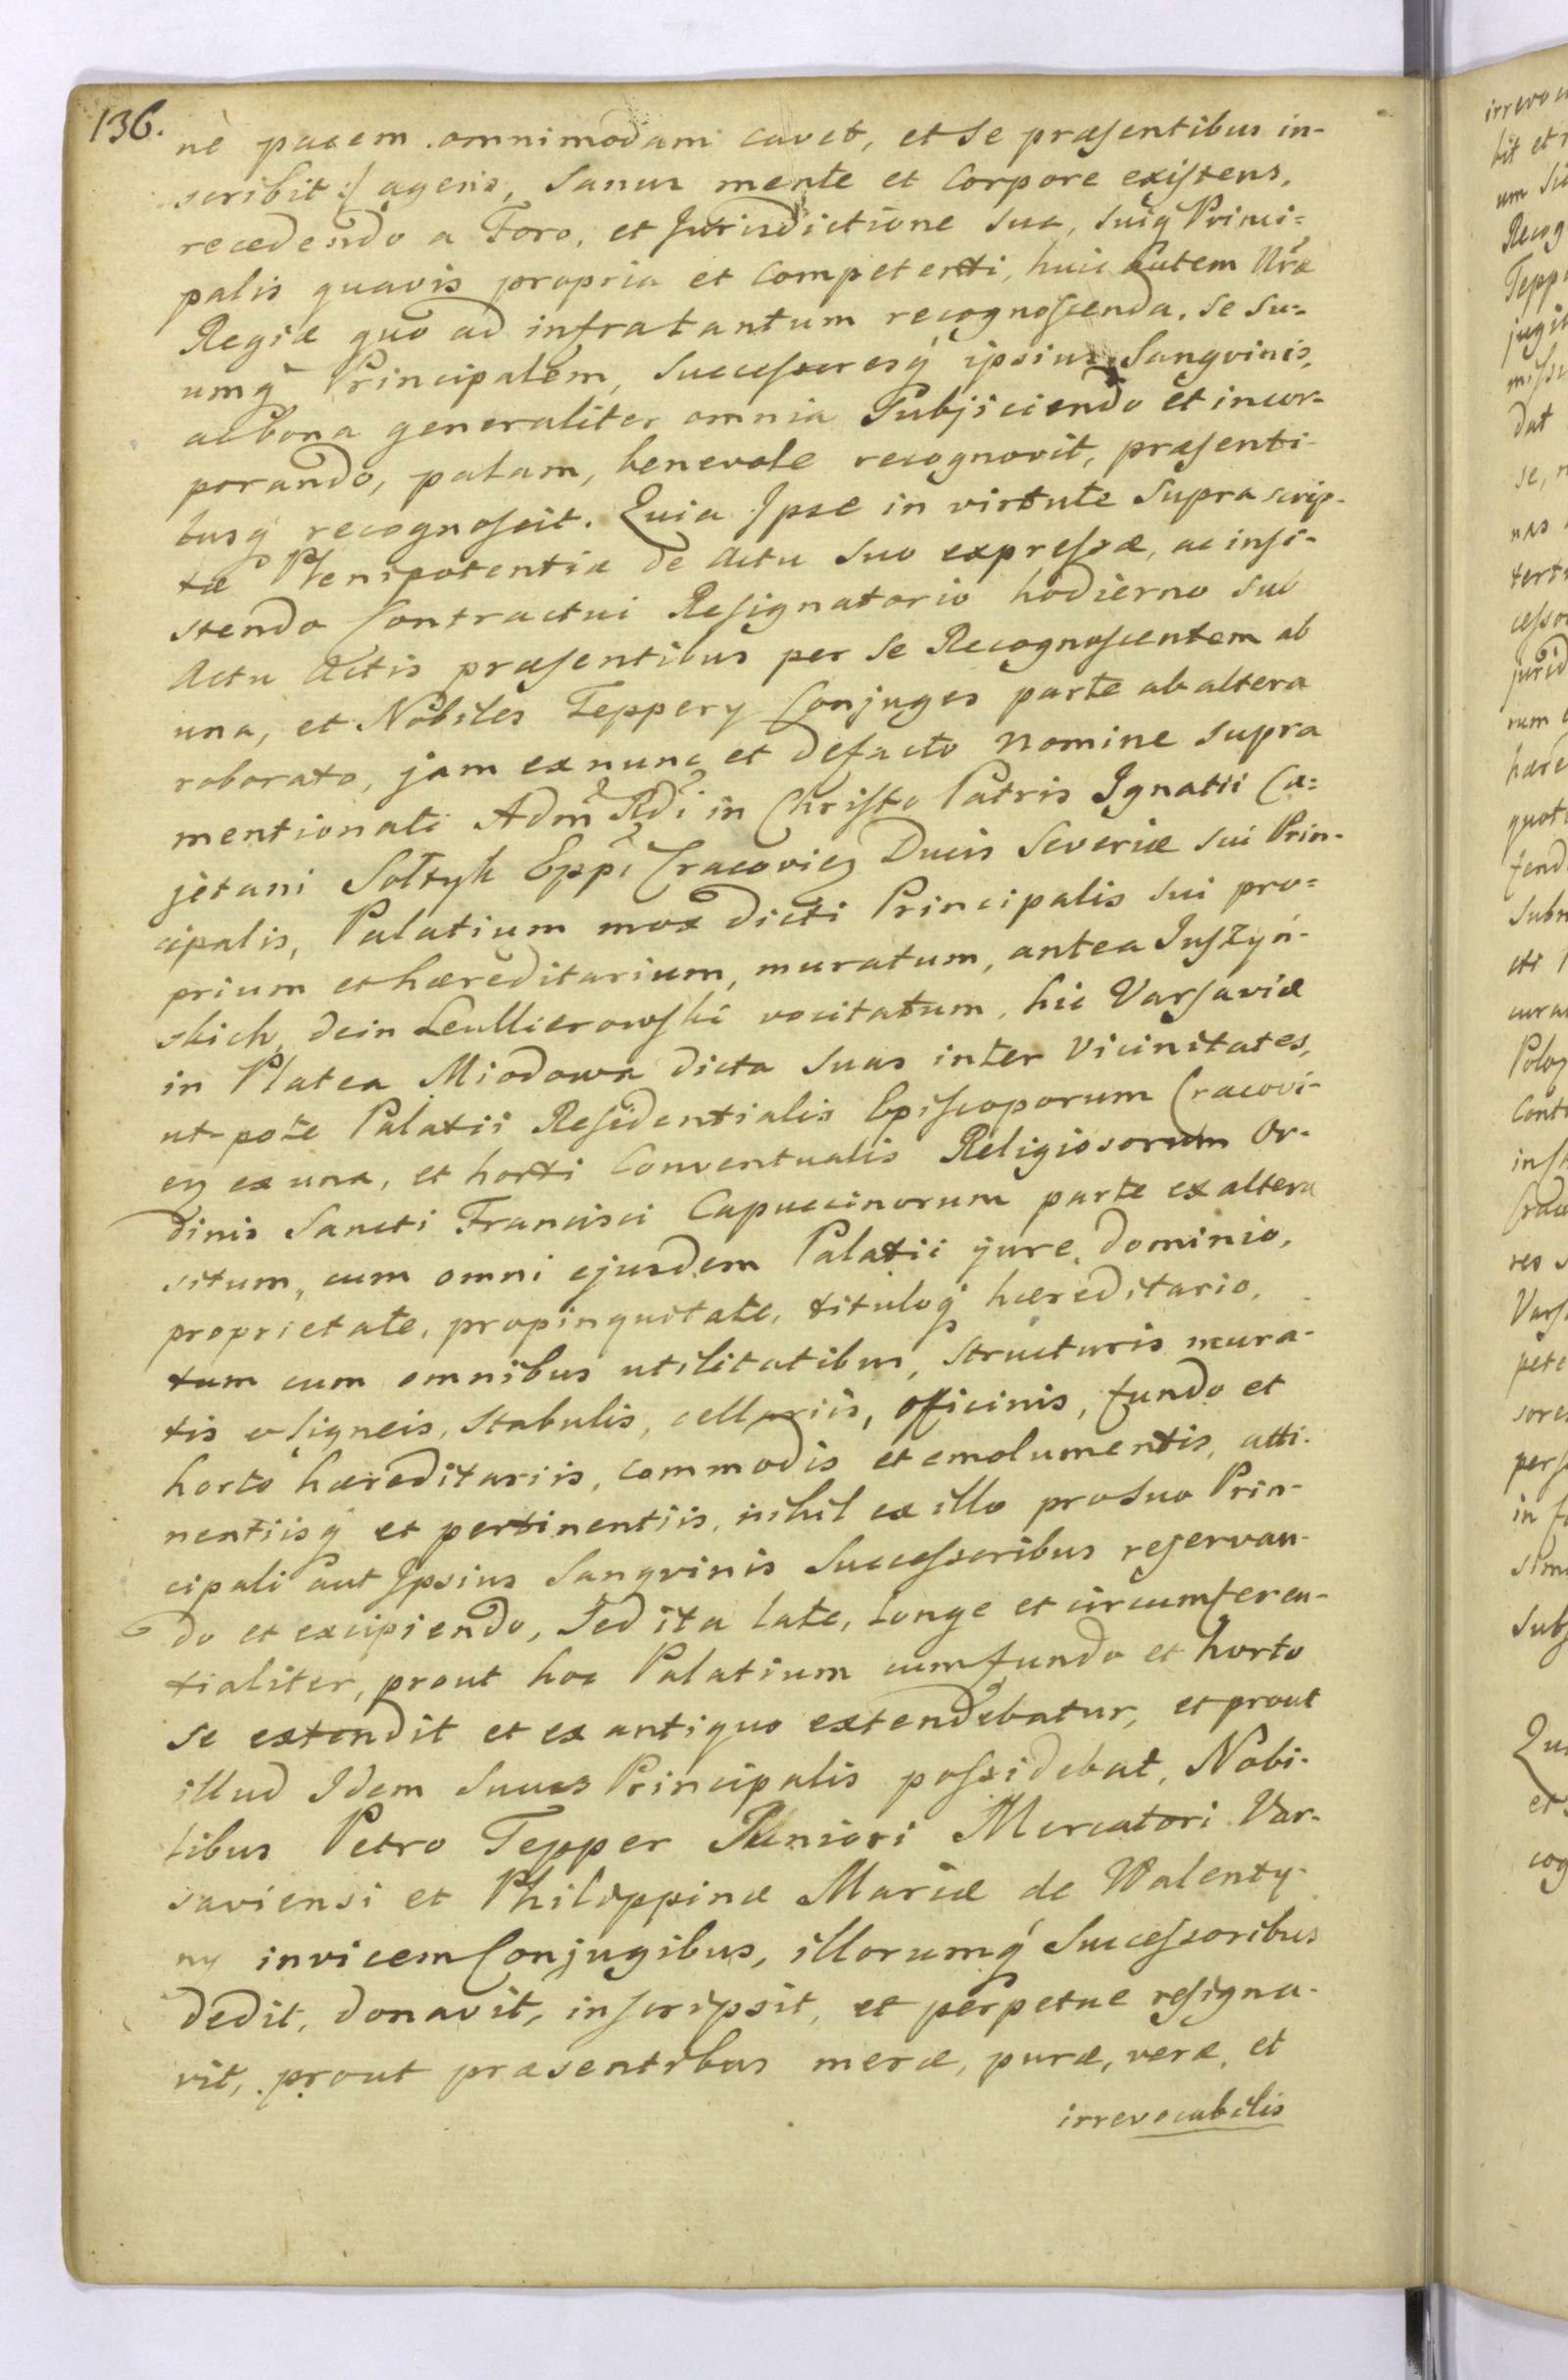 136.
nè pacem omnimodam cavet, et se præsentibus in-
scribit :/ agens, Sanus mente et Corpore existens,
recedendo a Foro, et Jurisdictione sua, suiq Princi=
palis quavis propria et Competenti, huic autem Nræ
Regiæ quo ad infratantum recognoscenda. se su=
umq Principalem, Successoresq ipsius Sangvinis,
ac bona generaliter omnia Subjiciendo et incor=
porando, palam, benevole recognovit, præsenti-
busq recognoscit. Quia Ipse in virtute Suprascrip-
tæ Plenipotentiæ de Actu suo expressæ, ac insi-
stendo Contractui Resignatorio hodierno sub
Actu Actis præsentibus per se Recognoscentem ab
una, et Nobiles Teppery Conjuges parte ab altera
roborato, jam exnunc et defacto nomine supra
mentionati Adm Rdi in Christo Patris Ignatii Ca=
jetani Sołtyk Eppi Cracovien Ducis Severiæ sui Prin-
cipalis, Palatium mox dicti Principalis sui pro=
prium et hæreditarium, muratum, antea Juszyń-
skich, dein Leullierowski vocitatum, hic Varsaviæ
in Platea Miodowa dicta suas inter Vicinitates,
ut-pote Palatii Residentialis Episcoporum Cracovi-
en ex una, et horti Conventualis Religiosorum Or-
dinis Sancti Francisci Capuccinorum parte ex altera
situm, cum omni ejusdem Palatii jure, dominio,
proprietate, propinquitate, tituloq hæreditario,
tum cum omnibus utilitatibus, structuris mura-
tis et ligneis, Stabulis, cellariis, officinis, fundo et
horto hæreditariis, commodis et emolumentis, atti-
nentiisq et pertinentiis, nihil ex illo pro suo Prin-
cipali aut Ipsius Sangvinis Successoribus reservan-
do et excipiendo, Sed ita late, longe et circumferen-
tialiter, prout hoc Palatium cum fundo et horto
se extendit et ex antiquo extendebatur, et prout
illud Idem Suus Principalis possidebat, Nobi-
libus Petro Tepper Juniori Mercatori Var-
saviensi et Philippinæ Mariæ de Walenty-
ny invicem Conjugibus, illorumq Successoribus
dedit, donavit, inscripsit, et perpetue resigna-
vit, prout præsentibus meræ, puræ, veræ, et
irrevocabilis